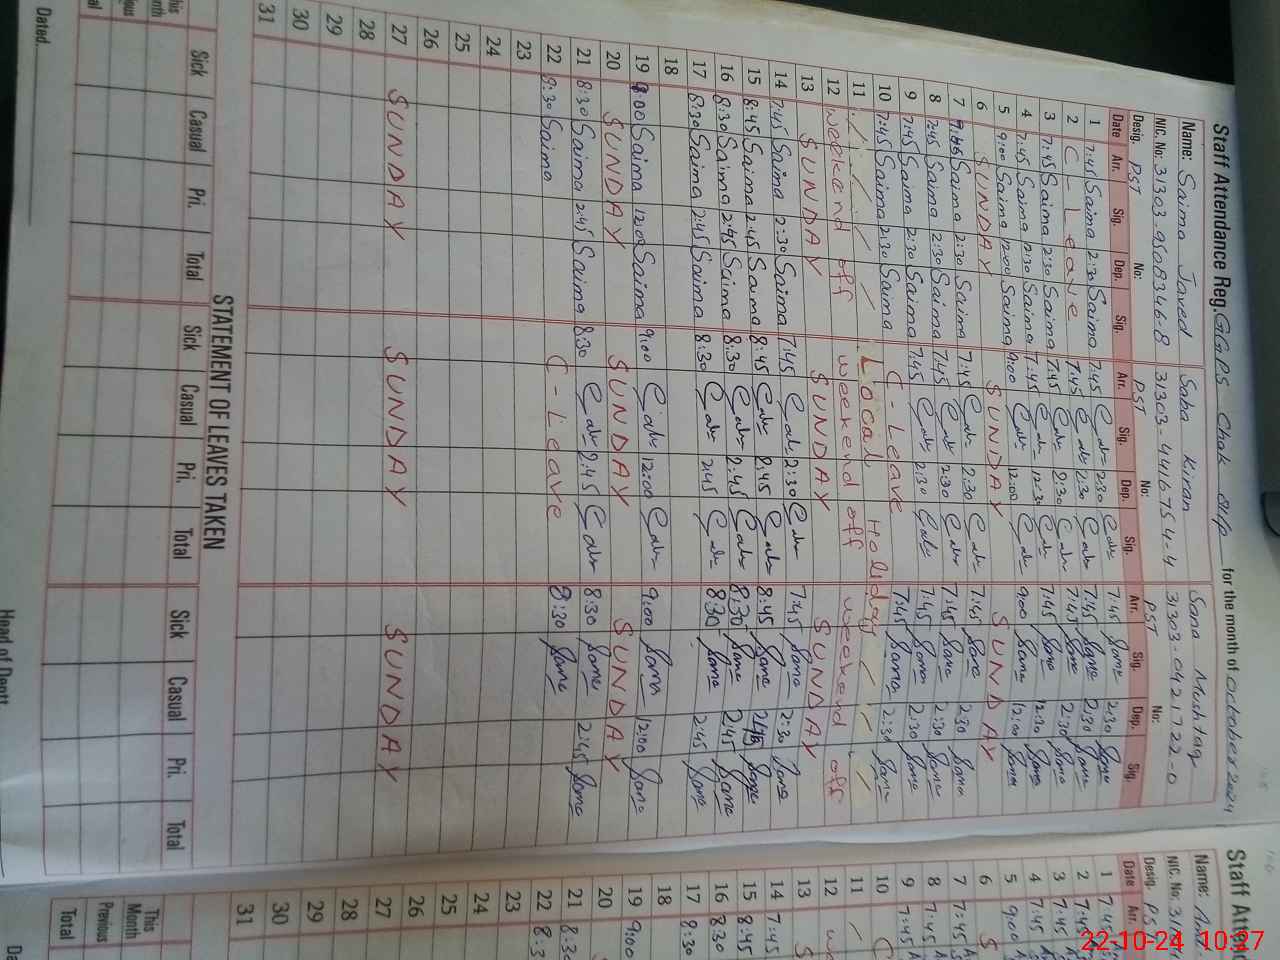 Staff Attendance Reg. GGPS Chak 84p for the month of October 2024
Name: Saima Javed Saba Kiran Sana Mushtaq
NIC. No: 31303-9508346-8 31303-4416754-4 31303-0421722-0
Desig. PST No: PST No: PST No:
Date Arr. Sig. Dep. Sig. Arr. Sig. Dep. Sig. Arr. Sig. Dep. Sig.
1 7:45 Saima 2:30 Saima 7:45 2:30 7:45 Sana 2:30 Sana
2 C - Leave 7:45 2:30 7:45 Sana 2:30 Sana
3 7:45 Saima 2:30 Saima 7:45 2:30 7:45 Sana 2:30 Sana
4 7:45 Saima 12:30 Saima 7:45 12:30 7:45 Sana 12:30 Sana
5 9:00 Saima 12:00 Saima 9:00 12:00 9:00 Sana 12:00 Sana
6 SUNDAY SUNDAY SUNDAY
7 7:45 Saima 2:30 Saima 7:45 2:30 7:45 Sana 2:30 Sana
8 7:45 Saima 2:30 Saima 7:45 2:30 7:45 Sana 2:30 Sana
9 7:45 Saima 2:30 Saima 7:45 2:30 7:45 Sana 2:30 Sana
10 7:45 Saima 2:30 Saima C - Leave 7:45 Sana 2:30 Sana
11 Local Holiday
12 weekend off weekend off weekend off
13 SUNDAY SUNDAY SUNDAY
14 7:45 Saima 2:30 Saima 7:45 2:30 7:45 Sana 2:30 Sana
15 8:45 Saima 2:45 Saima 8:45 2:45 8:45 Sana 2:45 Sana
16 8:30 Saima 2:45 Saima 8:30 2:45 8:30 Sana 2:45 Sana
17 8:30 Saima 2:45 Saima 8:30 2:45 8:30 Sana 2:45 Sana
18
19 9:00 Saima 12:00 Saima 9:00 12:00 9:00 Sana 12:00 Sana
20 SUNDAY SUNDAY SUNDAY
21 8:30 Saima 2:45 Saima 8:30 2:45 8:30 Sana 2:45 Sana
22 8:30 Saima C - Leave 8:30 Sana
23
24
25
26
27 SUNDAY SUNDAY SUNDAY
28
29
30
31
STATEMENT OF LEAVES TAKEN
Sick Casual Pri. Total Sick Casual Pri. Total Sick Casual Pri. Total
Dated
Head of Deptt
Staff Atten
Name:
NIC. No:
Desig.
Date Arr.
1 7:45
2 7:45
3 7:45
4 7:45
5 9:00
6 S
7 7:45
8 7:45
9 7:45
10 C
11
12
13 S
14 7:45
15 8:45
16 8:30
17 8:30
18
19 9:00
20
21 8:30
22 8:3
23
24
25
26
27
28
29
30
31
This Month
Previous
Total
22-10-24 10:27